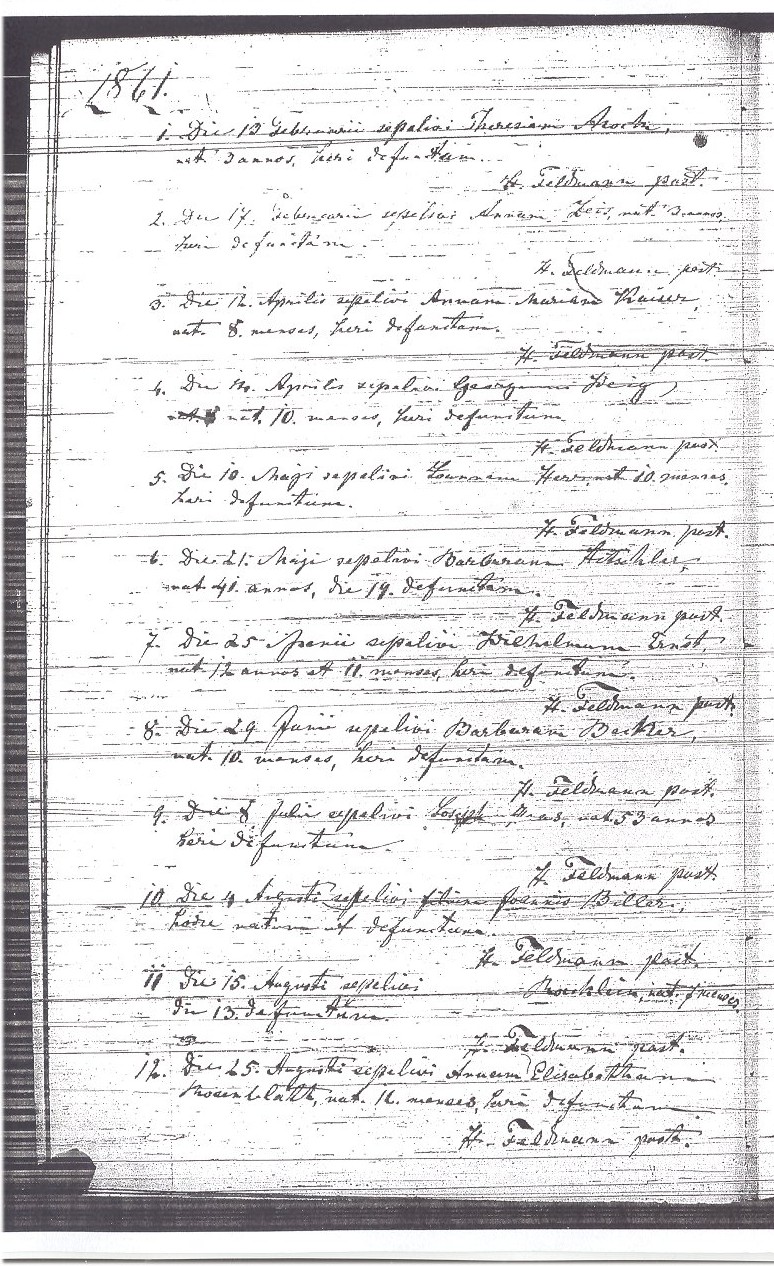 1861.
1. Die 13 Februarii sepelivi Theresiam
nat. 3 annos, heri defunctam.
H. Feldmann past.
2. Die 17. Februarii sepelivi Annam Zeis, nat. 3 annos.
heri defunctam.
H. Feldmann past.
3. Die 12. Aprilis sepelivi Annam Mariam Kaiser,
nat. 8. menses, heri defunctam.
H. Feldmann past.
4. Die Aprilis sepelivi Georgium
nat. 10. menses, heri defunctum
H. Feldmann past.
5. Die 10. Maji sepelivi nat 10. menses.
heri defunctum.
H. Feldmann past.
6. Die 21. Maji sepelivi Barbaram Hitschler,
nat 41 annos, die 19. defunctam.
H. Feldmann past.
7. Die 25 Junii sepelivi Wilhelmum Ernst,
nat 12 annos et 11. menses, heri defunctum.
H. Feldmann past.
8. Die 29 Junii sepelivi Barbaram Becker,
nat. 10. menses, heri defunctam.
H. Feldmann past.
9. Die 8 Julii sepelivi Joseph nat 53 annos
heri defunctum
H. Feldmann past.
10. Die 4 Augusti sepelivi Joannis Biller,
hodie natum et defunctum.
H. Feldmann past.
11 Die 15. Augusti sepelivi nat. menses.
die 13. defunctum.
H. Feldmann past.
12. Die 25. Augusti sepelivi Annam Elisabetham
Rosenblatt, nat. 12. menses, heri defunctam
H. Feldmann past.